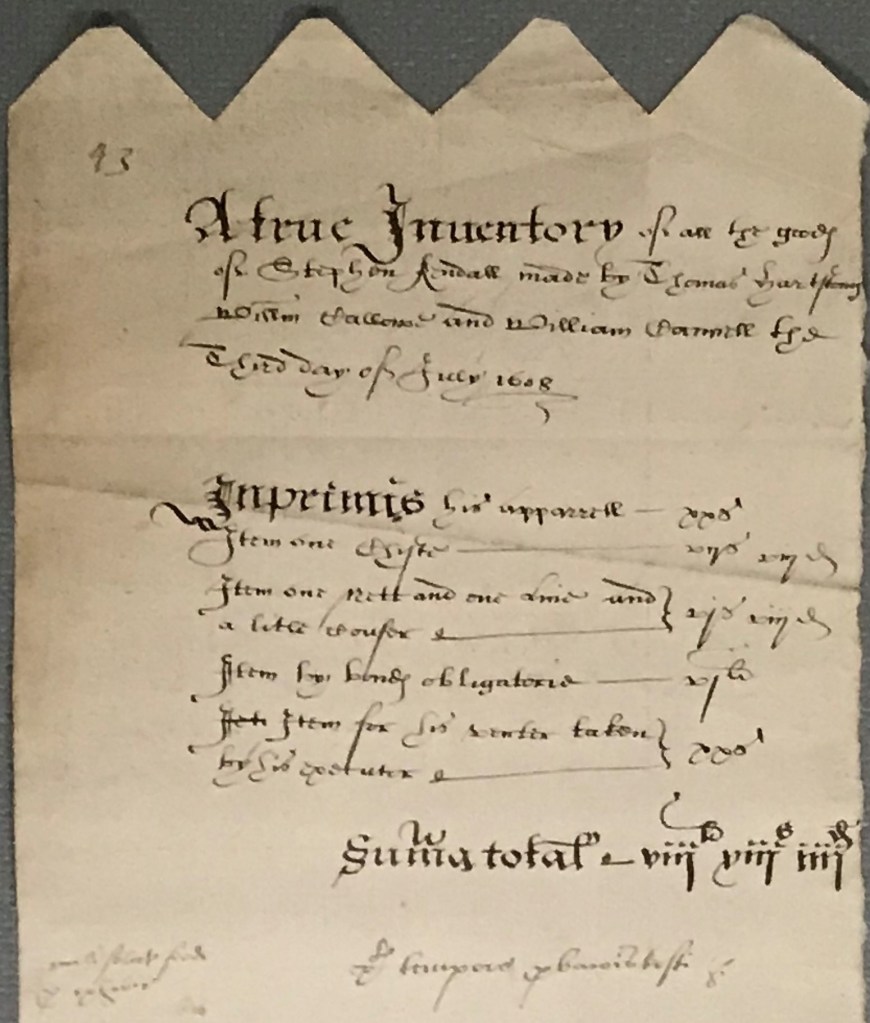 43
A true Inventory of all the goods
of Stephen Kendall made by Thomas
Willm Callowe and William Cannell the
Third day of July 1608
Inprimis his apparrell — xxs
Item one Chiste — vijs viij d
Item one Nett and one line and
a litle Coufer — vjs viij d
Item by bonds obligatorie — vj li
Item for his venter taken
by his executer — xxs
Suma total — viij li xiij s iiij d
tempore